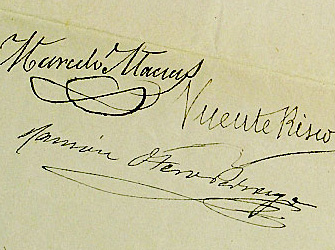 Marcelo Macías
Vicente Risco
Ramón Otero Pedrayo